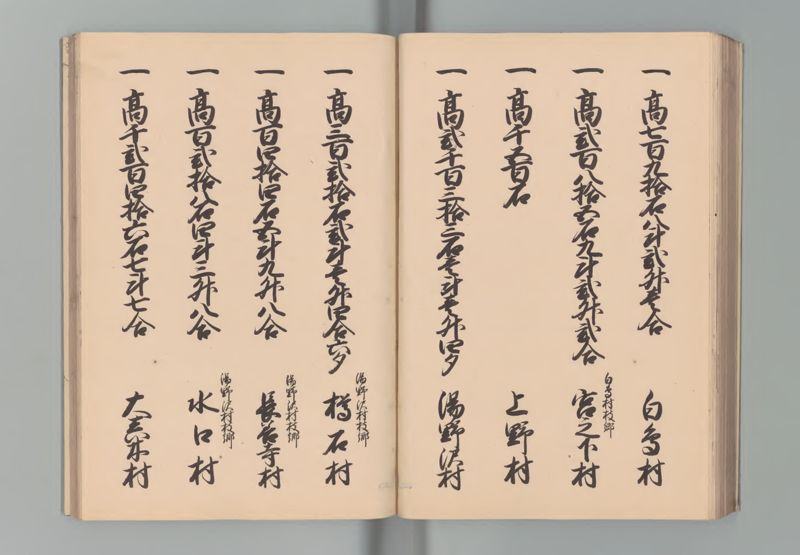 一 高七百九拾石八斗弐升壱合
白鳥村
一 高弐百八拾五石九斗弐升弐合
白鳥村枝郷
宮之下村
一 高千五百石
上野村
一 高弐千百三拾三石壱斗壱升四夕
湯野沢村
一 高三百弐拾石弐斗壱升四合六夕
湯野沢村枝郷
樽石村
一 高百四拾四石五斗九升八合
湯野沢村枝郷
長善寺村
一 高百弐拾八石四斗三升八合
湯野沢村枝郷
水口村
一 高千弐百四拾六石七斗七合
大真木村